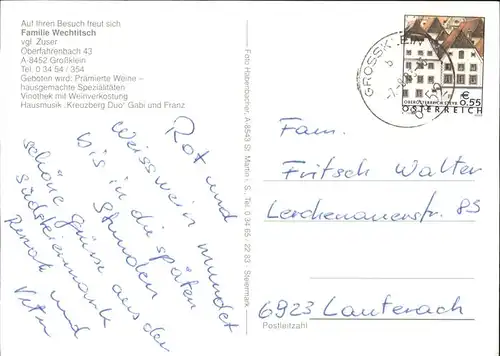 Auf Ihren Besuch freut sich
Familie Wechtitsch
vgl. Zuser
Oberfahrenbach 43
A-8452 Großklein
Tel. 0 34 54 / 354
Geboten wird: Prämierte Weine –
hausgemachte Spezialitäten
Vinothek mit Weinverkostung
Hausmusik „Kreuzberg Duo" Gabi und Franz
Rot und
Weisswein mundet
bis in die späten
Stunden
schöne Grüsse aus der
Südsteiermark
Renate und
Foto Hatzenbacher, A-8543 St. Martin i. S., Tel. 0 34 65 - 22 83 Steiermark
GROSSKLEIN
€ 0,55
ÖSTERREICH
Fam.
Fritsch Walter
Lerchenauerstr. 85
6923 Lauterach
Postleitzahl